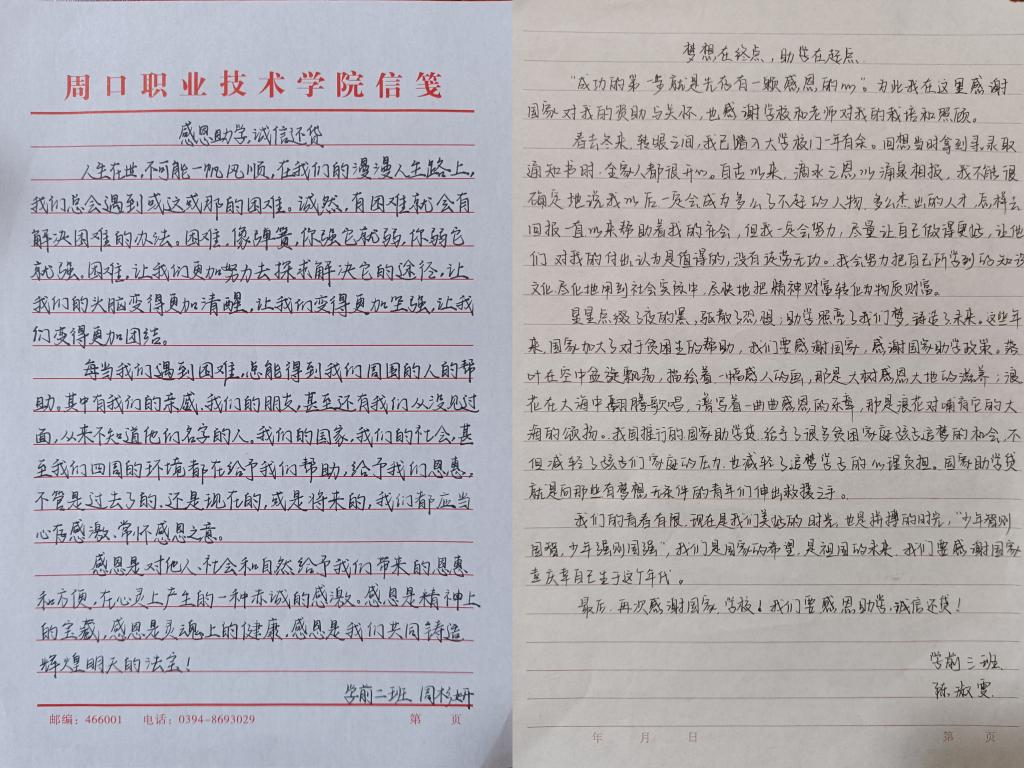 周口职业技术学院信笺
感恩助学,诚信还贷
人生在世,不可能一帆风顺,在我们的漫漫人生路上,
我们总会遇到或这或那的困难。诚然,有困难就会有
解决困难的办法。困难,像弹簧,你强它就弱,你弱它
就强。困难,让我们更加努力去探求解决它的途径,让
我们的头脑变得更加清醒,让我们变得更加坚强,让我
们变得更加团结。
每当我们遇到困难,总能得到我们周围的人的帮
助。其中有我们的亲戚,我们的朋友,甚至还有我们从没见过
面,从来不知道他们名字的人。我们的国家,我们的社会,甚
至我们四周的环境都在给予我们帮助,给予我们恩惠,
不管是过去了的、还是现在的,或是将来的,我们都应当
心存感激、常怀感恩之意。
感恩是对他人、社会和自然给予我们带来的恩惠
和方便,在心灵上产生的一种赤诚的感激。感恩是精神上
的宝藏,感恩是灵魂上的健康,感恩是我们共同铸造
辉煌明天的法宝!
学前二班 周杉妍
邮编:466001 电话:0394-8693029 第 页
梦想在终点,助学在起点
“成功的第一步就是先存有一颗感恩的心”。为此我在这里感谢
国家对我的资助与关怀,也感谢学校和老师对我的栽培和照顾。
春去冬来,转眼之间,我已踏入大学校门一年有余。回想当时拿到录取
通知书时,全家人都很开心。自古以来,滴水之恩以涌泉相报,我不能很
确定地说我以后一定会成为多么了不起的人物,多么杰出的人才,怎样去
回报一直以来帮助着我的社会,但我一定会努力,尽量让自己做得更好,让他
们对我的付出认为是值得的,没有徒劳无功。我会努力把自己所学到的知识
文化尽化地用到社会实际中,尽快地把精神财富转化为物质财富。
星星点缀了夜的黑,驱散了恐惧;助学照亮了我们梦,铸造了未来。这些年
来,国家加大了对于贫困生的帮助,我们要感谢国家,感谢国家助学政策。落
叶在空中盘旋飘荡,描绘着一幅感人的画,那是大树感恩大地的滋养;浪
花在大海中翻腾歌唱,谱写着一曲曲感恩的乐章,那是浪花对哺育它的大
海的颂扬。我国推行的国家助学贷,给予了很多贫困家庭孩子追梦的机会,不
但减轻了孩子们家庭的压力,也减轻了追梦学子的心理负担。国家助学贷
就是向那些有梦想,无条件的青年们伸出救援之手。
我们的青春有限,现在是我们美好的时光,也是拼搏的时光,“少年智则
国智,少年强则国强”,我们是国家的希望,是祖国的未来,我们要感谢国家
喜庆幸自己生于这个年代。
最后,再次感谢国家、学校!我们要感恩助学,诚信还贷!
学前三班
陈淑雯
年 月 日 第 页